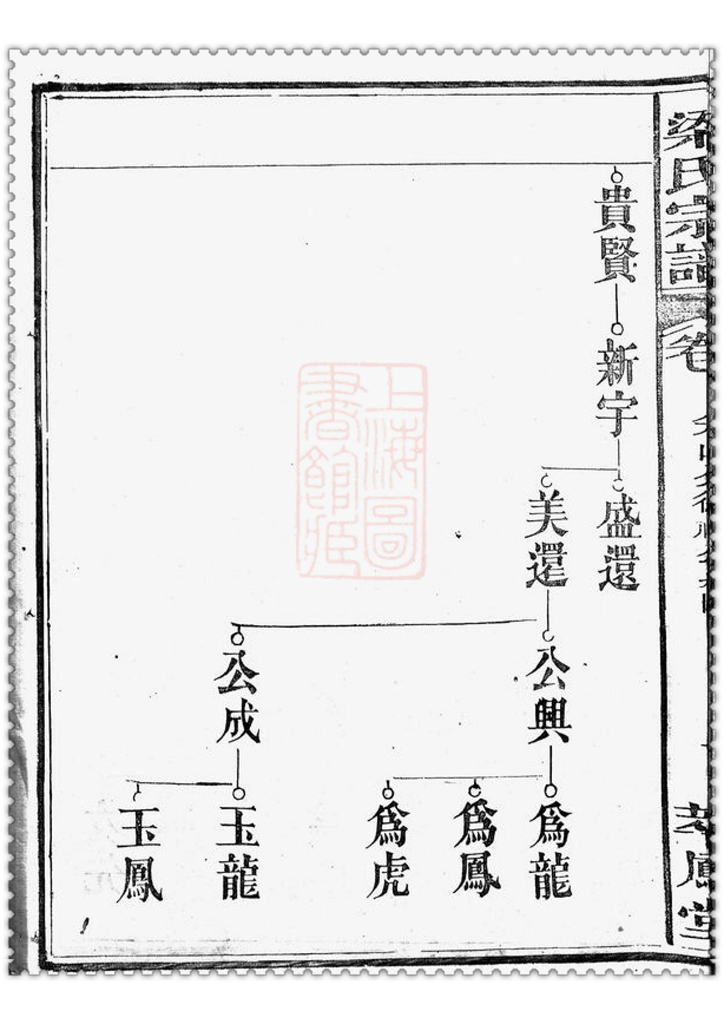 梁氏宗譜
卷
貴賢
新宇
盛還
美還
公興
公成
為龍
為鳳
為虎
玉龍
玉鳳
鳳堂
上海圖
書館藏